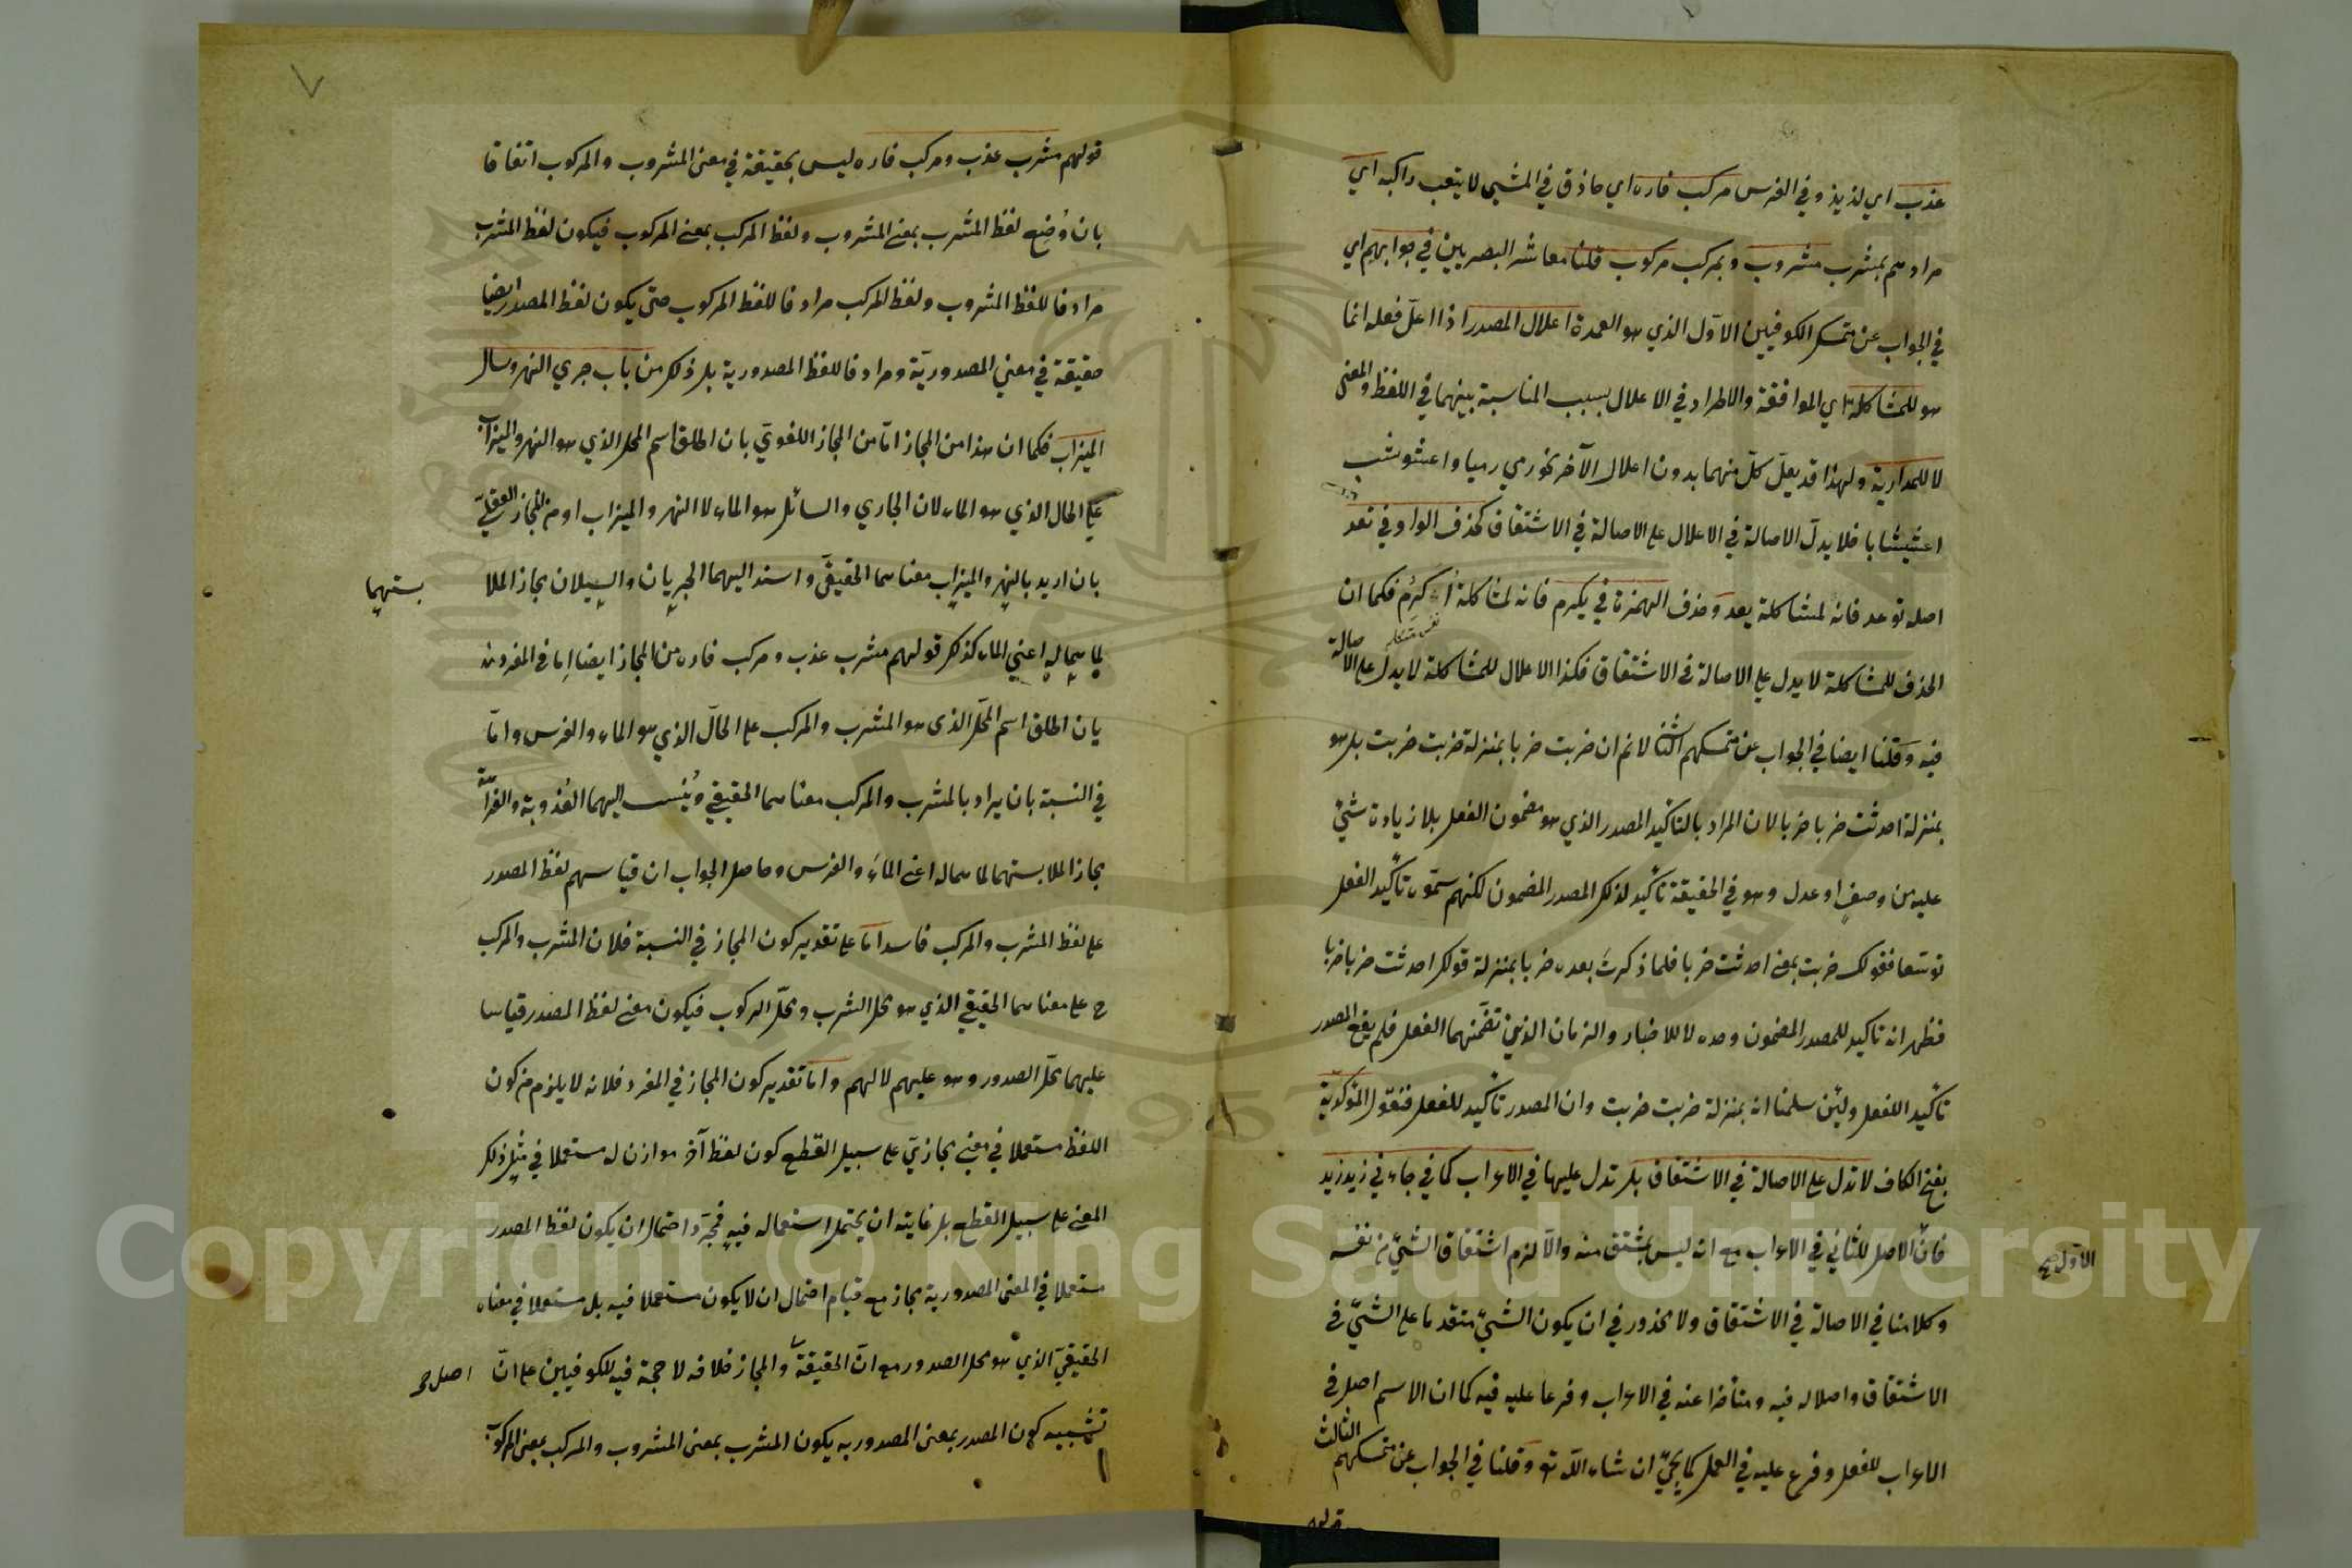 عذب اي لذيذ وفي الفرس مركب فاره اي حاذق في المشي لا يتعب راكبه اي
مرادهم بمشرب مشروب وبمركب مركوب قلنا معاشر البصريين في جوابهم اي
في الجواب عن متمسك الكوفيين الاول الذي هو العمدة اعلال المصدر اذا اعلّ فعله انما
هو للمشاكلة اي الموافقة والاطراد في الاعلال بسبب المناسبة بينهما في اللفظ والمعنى
لا للمدارية ولهذا قد يعلّ كلّ منهما بدون اعلال الآخر نحو رمي رميا واعشوشب
اعشيشابا فلا يدلّ الاصالة في الاعلال على الاصالة في الاشتقاق كحذف الواو في تعد
اصله توعد فانه لمشاكلة يعد وحذف الهمزة في يكرم فانه لمشاكلة أكرم فكما ان
الحذف للمشاكلة لا يدل على الاصالة في الاشتقاق فكذا الاعلال للمشاكلة لا يدل على الاصالة
فيه وقلنا ايضا في الجواب عن متمسكهم الثاني لا نم ان ضربت ضربا بمنزلة ضربت ضربت بل هو
بمنزلة احدثت ضربا ضربا لان المراد بالتأكيد المصدر الذي هو مضمون الفعل بلا زيادة شيء
عليه من وصف او عدل وهو في الحقيقة تأكيد لذلك المصدر المضمون لكنهم سمّوه تأكيد الفعل
توسعا فقولك ضربت بمعنى احدثت ضربا فلما ذكرت بعده ضربا بمنزلة قولك احدثت ضربا ضربا
فظهر انه تاكيد للمصدر المضمون وحده لا للاخبار والزمان الذين تضمّنهما الفعل فلم يقع المصدر
تأكيد الفعل ولئن سلمنا انه بمنزلة ضربت ضربت وان المصدر تأكيد للفعل فنقول المؤكدية
بفتح الكاف لا تدل على الاصالة في الاشتقاق بل تدل عليها في الاعراب كما في جاءني زيد زيد
فانّ الاصل للثاني في الاعراب مع انه ليس بمشتق منه والّا لزم اشتقاق الشيّ من نفسه
الاول صح
وكلامنا في الاصالة في الاشتقاق ولا محذور في ان يكون الشيّ متقدما على الشيّ في
الاشتقاق واصلا له فيه ومتأخرا عنه في الاعراب وفرعا عليه فيه كما ان الاسم اصل في
الاعراب للفعل وفرع عليه في العمل كما يجيّ ان شاء الله تع وقلنا في الجواب عن متمسكهم الثالث
قولهم
قولهم مشرب عذب ومركب فاره ليس بحقيقة في معنى المشروب والمركوب اتفاقا
بان وُضِع لفظ المشرب بمعنى المشروب ولفظ المركب بمعنى المركوب فيكون لفظ المشرب
مرادفا للفظ المشروب ولفظ المركب مرادفا للفظ المركوب حتى يكون لفظ المصدر ايضا
حقيقة في معنى المصدوريّة ومرادفا للفظ المصدورية بل ذلك من باب جري النهر وسال
الميزاب فكما ان هذا من المجاز امّا من المجاز اللغويّ بان اطلق اسم المحل الذي هو النهر والميزاب
على الحال الذي هو الماء لان الجاري والسائل هو الماء لا النهر والميزاب او من المجاز العقليّ
بان اريد بالنهر والميزاب معناهما الحقيقيّ واسند اليهما الجريان والسيلان مجاز الملا
بستهما
لما هما له اعني الماء كذلك قولهم مشرب عذب ومركب فاره من المجاز ايضا اما في المفرد
بان اطلق اسم المحلّ الذى هو المشرب والمركب على الحالّ الذي هو الماء والفرس وامّا
في النسبة بان يراد بالمشرب والمركب معناهما الحقيقي ويُنسب اليهما العُذوبة والفراهة
مجاز الملابستهما لما هما له اعنى الماء والفرس وحاصل الجواب ان قياسهم لفظ المصدر
على لفظ المشرب والمركب فاسد امّا على تقدير كون المجاز في النسبة فلان المشرب والمركب
ح على معناهما الحقيقي الذي هو محل الشرب ومحلّ الركوب فيكون معنى لفظ المصدر قياسا
عليهما محلّ الصدور وهو عليهم لا لهم وامّا تقدير كون المجاز في المفرد فلانه لا يلزم من كون
اللفظ مستعملا في معنى مجازيّ على سبيل القطع كون لفظ آخر موازن له مستعملا في مثل ذلك
المعنى على سبيل القطع بل غايته ان يحتمل استعماله فيه فمجرّد احتمال ان يكون لفظ المصدر
مستعملا في المعنى المصدورية مجاز مع قيام احتمال ان لا يكون مستعملا فيه بل مستعملا في معناه
الحقيقيّ الذي هو محل الصدور مع انّ الحقيقة والمجاز خلافه لا حجة فيه للكوفيين على انّ
اصل
تشبيه كون المصدر بمعنى المصدور به يكون المشرب بمعنى المشروب والمركب بمعنى المركوب